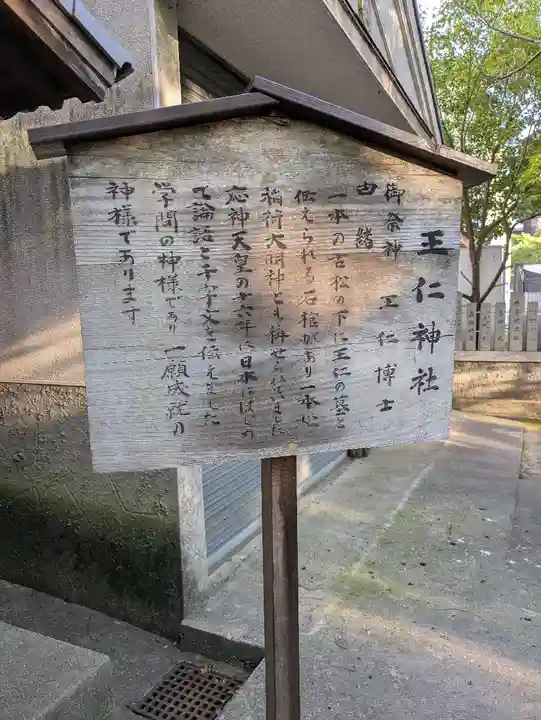 王仁神社
御祭神 王仁博士
由緒
一本の古松の下に王仁の墓と
伝えられる石棺があり一本松
稲荷大明神とも称せられていました
応神天皇の十六年に日本にはじめ
て論語と千字文を伝えました
学問の神様であり 一願成就の
神様であります